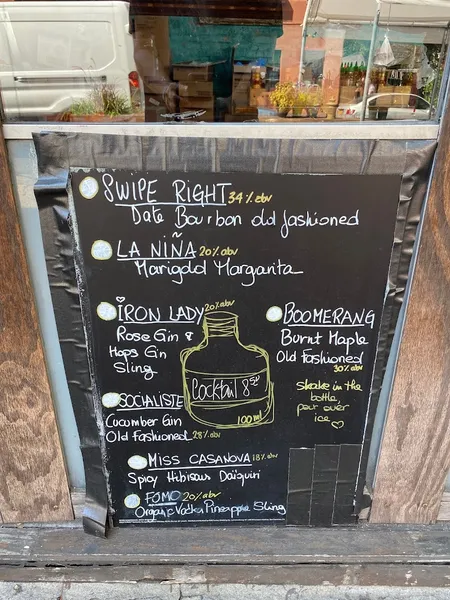 SWIPE RIGHT 34% abv
Date Bourbon old fashioned
LA NIÑA 20% abv
Marigold Margarita
IRON LADY 20% abv
Rose Gin &
Hops Gin
Sling
BOOMERANG
Burnt Maple
Old Fashioned
30% abv
Cocktail 8
100ml
shake in the
bottle,
pour over
ice
SOCIALISTE
Cucumber Gin
Old Fashioned 28% abv
MISS CASANOVA 18% abv
Spicy Hibiscus Daïquiri
FOMO 20% abv
Organic Vodka Pineapple Sling